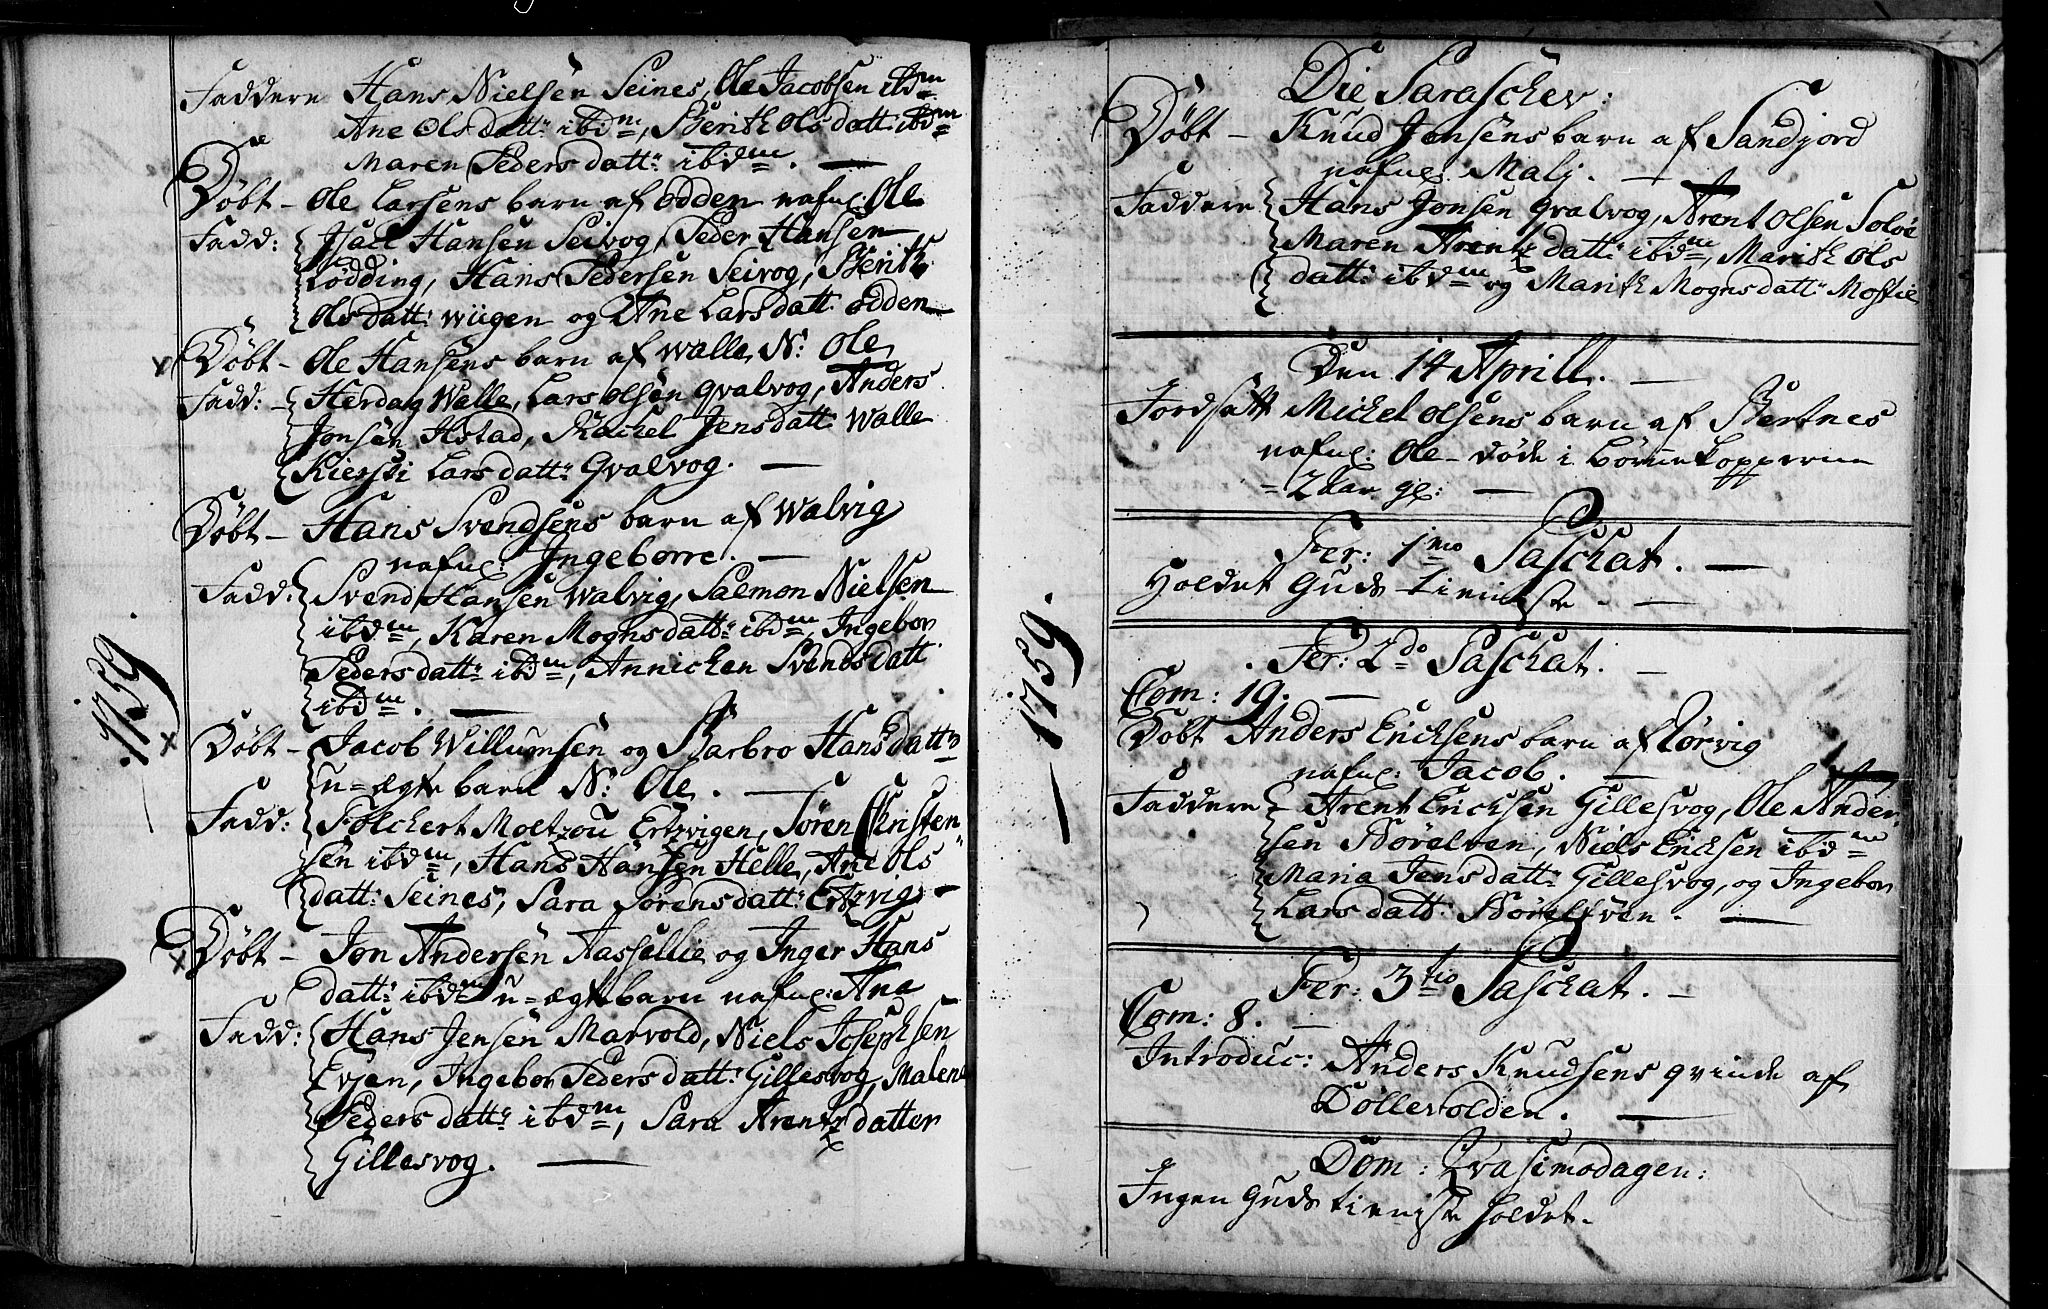 Faddere Hans Nielsen Seines, Ole Jacobsen ibdm
Ane Olsdatt: ibdm, Berith Olsdatt: ibdm
Maren Pedersdatt: ibdm. —
Döbt – Ole Larsens barn af Odden nafnl: Ole
Fadd: Isach Hansen Seivog, Peder Hansen
Lödding, Hans Pedersen Seivog, Berith
Olsdatt: Wiigen og Ane Larsdatt: Odden –
Döbt – Ole Hansens barn af Walle N: Ole
Fadd: – Herdag Walle, Lars Olsen Qvalvog, Anders
Jonsen Hstad, Rachel Jensdatt: Walle
Kiersti Larsdatt: Qvalvog. —
1759.
Döbt – Hans Svendsens barn af Walvig
nafnl: Ingeborre. —
Fadd: Svend Hansen Walvig, Salmon Nielsen
ibdm, Karen Mognsdatt: ibdm, Ingebor
Pedersdatt: ibdm, Annichen Svendsdatt
ibdm. —
Döbt – Jacob Willumsen og Barbro Hansdatt:
u=ægte barn N: Ole. —
Fadd: Folchert Moltzou Ertzvigen, Sören Christen-
sen ibdm, Hans Hansen Helle, Ane Ols
datt: Seines, Sara Sörensdatt: Ertzvig –
Döbt – Jon Andersen Aassellie og Inger Hans
datt: ibdm u=ægte barn nafnl: Ane
Fadd: Hans Jensen Marvold, Niels Josephsen
Evjen, Ingebor Pedersdatt: Gillesvog, Malene
Pedersdatt: ibdm, Sara Arentzdatter
Gillesvog. —
Die Paraschev:
Döbt – Knud Jonsens barn af Sandjord
nafnl: Malj. —
Faddere Hans Jonsen Qvalvog, Arent Olsen Soløe
Maren Arentzdatt: ibdm, Marith Ols
datt: ibdm og Marith Mognsdatt: Mostie
Den 14 Aprill. —
Jordsatt Michel Olsens barn af Bertnes
nafnl: Ole – döde i börnekopperne
= 2 Aar gl: —
Fer: 1mo Paschat. —
Holdet Guds tieniste. —
1759.
Fer: 2do Paschat. —
Com: 19. —
Döbt Anders Ericksens barn af Nörvig
nafnl: Jacob. —
Faddere – Arent Ericksen Gillesvog, Ole Ander-
sen Börelven, Niels Ericksen ibdm
Maria Jensdatt: Gillesvog, og Ingebor
Larsdatt: Börelfven. —
Fer: 3tio Paschat. —
Com: 8. —
Introduc: Anders Knudsens qvinde af
Döllevolden. —
Dom: Qvasimodagen:
Ingen Guds tieniste holdet.